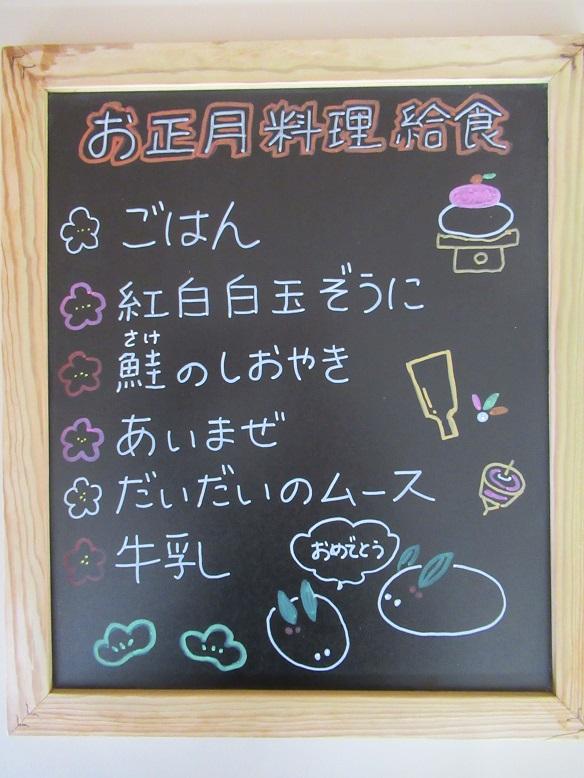 お正月料理給食
ごはん
紅白白玉ぞうに
さけ
鮭のしおやき
あいまぜ
だいだいのムース
牛乳
おめでとう